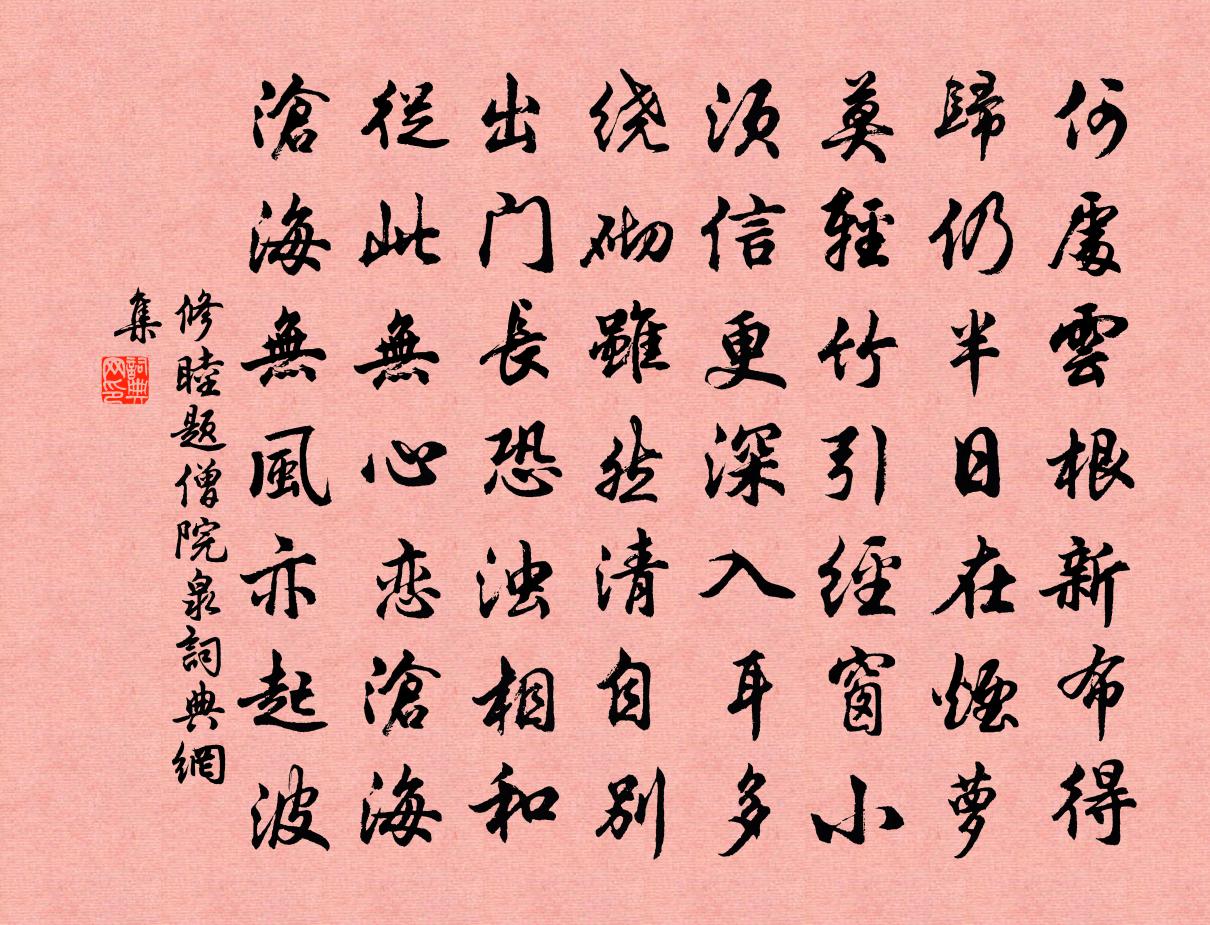 何處雲根新布得
歸仍半日在煙萝
莫輕竹引經窗小
須信更深入耳多
绕砌雖然清自别
出门長恐浊相和
従此無心恋滄海
滄海無風亦起波
修睦题僧院泉詞典網
集
詞典
网印